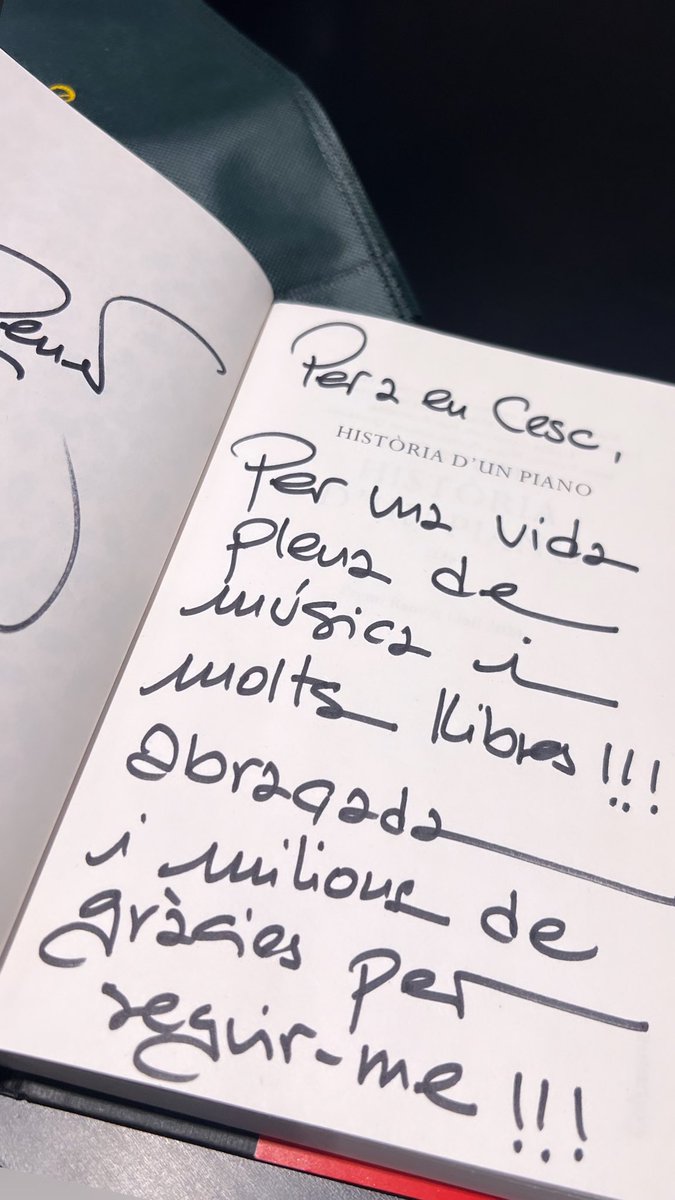 Per a en Cesc,
HISTÒRIA D'UN PIANO
Per una vida
plena de
música i
molts llibres!!!
Abraçada
i milions de
gràcies per
seguir-me!!!